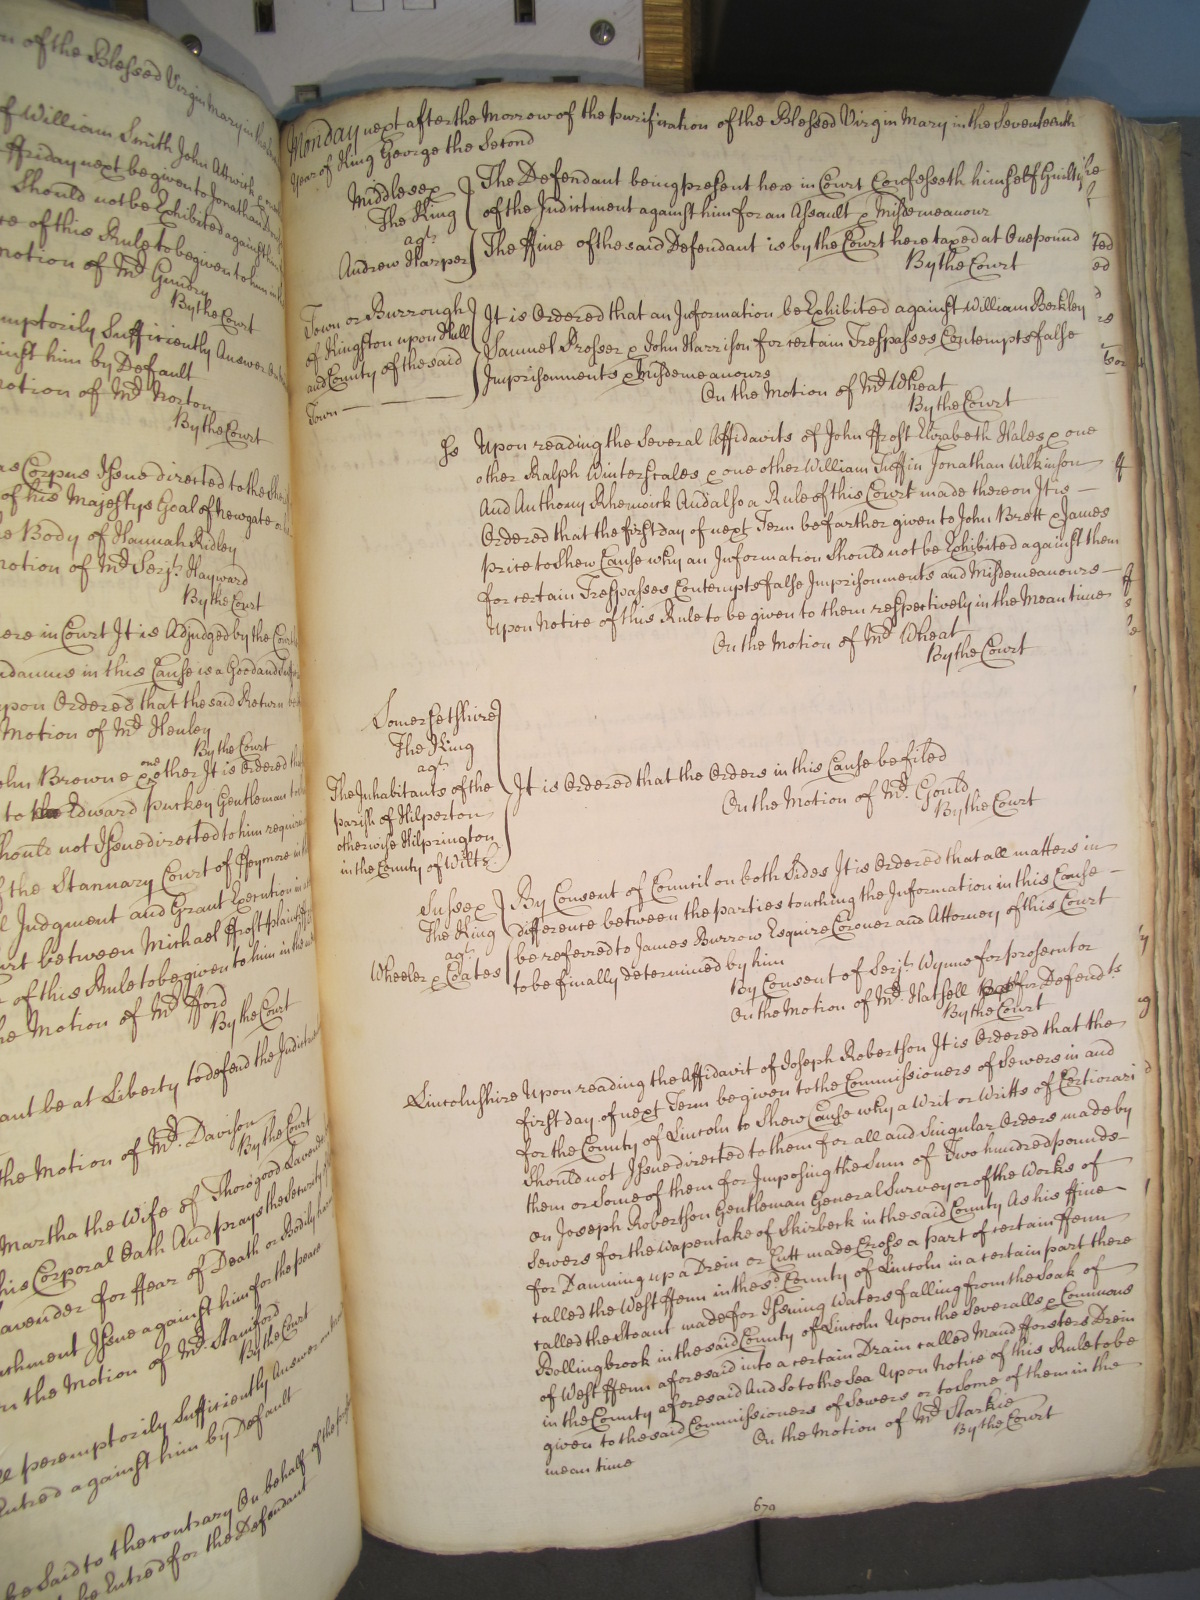 n of the Blessed Virgin Mary in the
of William Smith John Attwick
ffriday next be given to Jonathan
Should not be Exhibited against them
ce of this Rule to be given to him in
motion of Mr. Gundry
By the Court
emptorily Sufficiently Answer
inst him by Default
motion of Mr. Norton
By the Court
as Corpus Issue directed to the
of his Majestys Goal of Newgate
he Body of Hannah Ridley
motion of Mr. Serjt. Hayward
By the Court
here in Court It is Adjudged by the Court
ndamus in this Cause is a Good and
upon Ordered that the said Return be
Motion of Mr. Henley
By the Court
ohn Browne & one other It is Ordered
to Edward Puckey Gentleman
should not Issue directed to him
f the Stannary Court of
l Judgment and Grant Execution in
urt between Michael ffrost plaintiff
e of this Rule to be given to him in the
he Motion of Mr. fford
By the Court
ant be at Liberty to defend the
the Motion of Mr. Davison
By the Court
Martha the Wife of Thorogood Lavender
his Corporal Oath And prays the Security
avender for ffear of Death or Bodily harm
achment Issue against him for the peace
n the Motion of Mr. Stamford
By the Court
ll peremptorily Sufficiently Answer
Entred against him by Default
be Said to the contrary On behalf of the
be Entred for the Defendant
Monday next after the Morrow of the purification of the Blessed Virgin Mary in the Seventeenth
Year of King George the Second
Middlesex
The King
agt.
Andrew Harper
The Defendant being present here in Court Confesseth himself Guilty
of the Indictment against him for an Assault & Misdemeanour
The ffine of the said Defendant is by the Court here taxed at One pound
By the Court
Town or Burrough
of Kingston upon Hull
and County of the said
Town
It is Ordered that an Information be Exhibited against William Berkley
Samuel Prosser & John Harrison for certain Trespasses Contempts false
Imprisonments & Misdemeanours
On the Motion of Mr. Wheat
By the Court
Ss Upon reading the Several Affidavits of John ffrost Elizabeth Hales & one
other Ralph Winterscales & one other William Tuffin Jonathan Wilkinson
And Anthony Rhenwick And also a Rule of this Court made thereon It is
Ordered that the first day of next Term be farther given to John Brett & James
Price to Shew Cause why an Information Should not be Exhibited against them
for certain Trespasses Contempts false Imprisonments and Misdemeanours
Upon Notice of this Rule to be given to them respectively in the Mean time
On the Motion of Mr. Wheat
By the Court
Somersetshire
The King
agt.
The Inhabitants of the
parish of Hilperton
otherwise Hilprington
in the County of Wilts
It is Ordered that the Orders in this Cause be filed
On the Motion of Mr. Gould
By the Court
Sussex
The King
agt.
Wheeler & Coates
By Consent of Council on both Sides It is Ordered that all matters in
difference between the parties touching the Information in this Cause
be referred to James Burrow Esquire Coroner and Attorney of this Court
to be finally determined by him
By Consent of Serjt. Wynne for prosecutor
On the Motion of Mr. Hatsell for Defendts
By the Court
Lincolnshire Upon reading the Affidavit of Joseph Robertson It is Ordered that the
first day of next Term be given to the Commissioners of Sewers in and
for the County of Lincoln to Shew Cause why a Writ or Writts of Certiorari
Should not Issue directed to them for all and Singular Orders made by
them or Some of them for Imposing the Sum of Two hundred pounds
on Joseph Robertson Gentleman General Surveyor of the Works of
Sewers for the Wapentake of Skirbeck in the said County As his ffine
for Damning up a Drein or Cutt made Cross a part of certain ffenn
called the West ffenn in the sd. County of Lincoln in a certain part there
called the Steant made for Issuing Waters falling from the Soak of
Bollingbrook in the said County of Lincoln Upon the Severalls & Commons
of West ffenn aforesaid into a certain Drain called Maud fforsters Drein
in the County aforesaid And So to the Sea Upon Notice of this Rule to be
given to the said Commissioners of Sewers or to Some of them in the
mean time
On the Motion of Mr. Starkie
By the Court
670